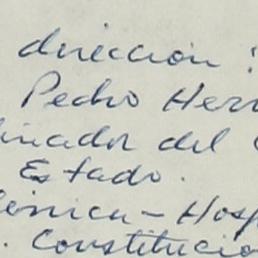 dirección :
Pedro Her
inador del
Estado.
línica - Hosp
. Constitucio